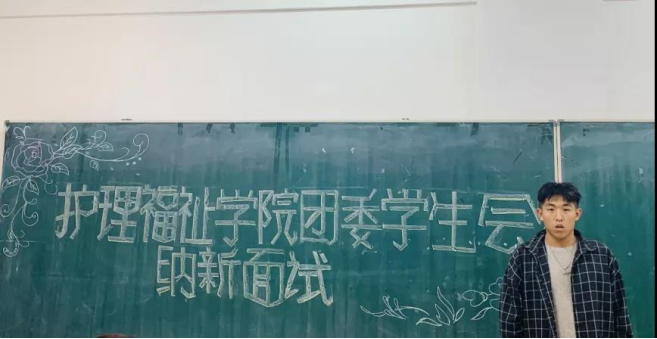 护理福祉学院团委学生会
纳新面试